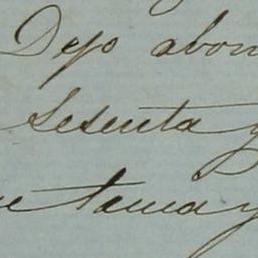 Dejo abon
Sesenta y
ue tama y